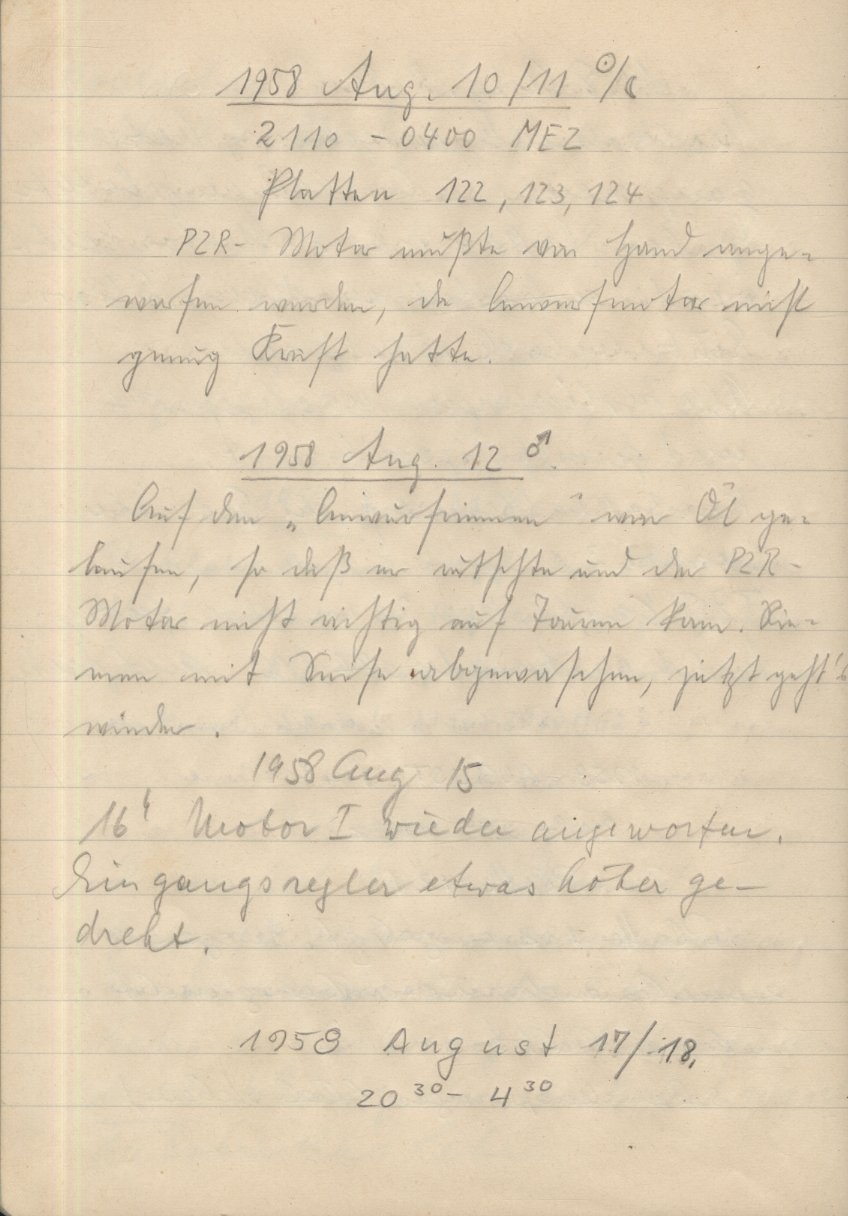 1958 Aug. 10/11 ☉/☾
2110 - 0400 MEZ
Platten 122, 123, 124
PZR- Motor mußte von Hand ange-
worfen werden, da Anwurfmotor nicht
genug Kraft hatte.
1958 Aug. 12 ♂.
Auf den „Anwurfriemen" war Öl ge-
laufen, so daß er rutschte und der PZR-
Motor nicht richtig auf Touren kam. Rie-
men mit Seife abgewaschen, jetzt geht's
wieder.
1958 Aug 15
16h Motor I wieder angeworfen.
Eingangsregler etwas höher ge-
dreht.
1958 August 17/18.
20 30 - 4 30